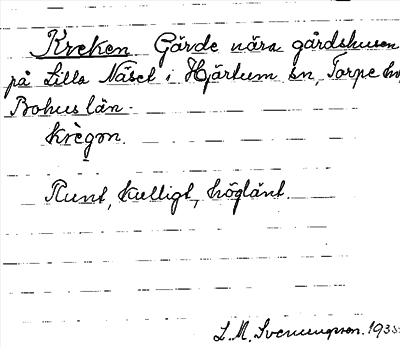 Kreken Gärde nära gårdshusen
på Lilla Näset i Hjärtum sn, Torpe hd,
Bohus län.
krègon.
Runt, kulligt, höglänt.
L. M. Svenungsson. 1935